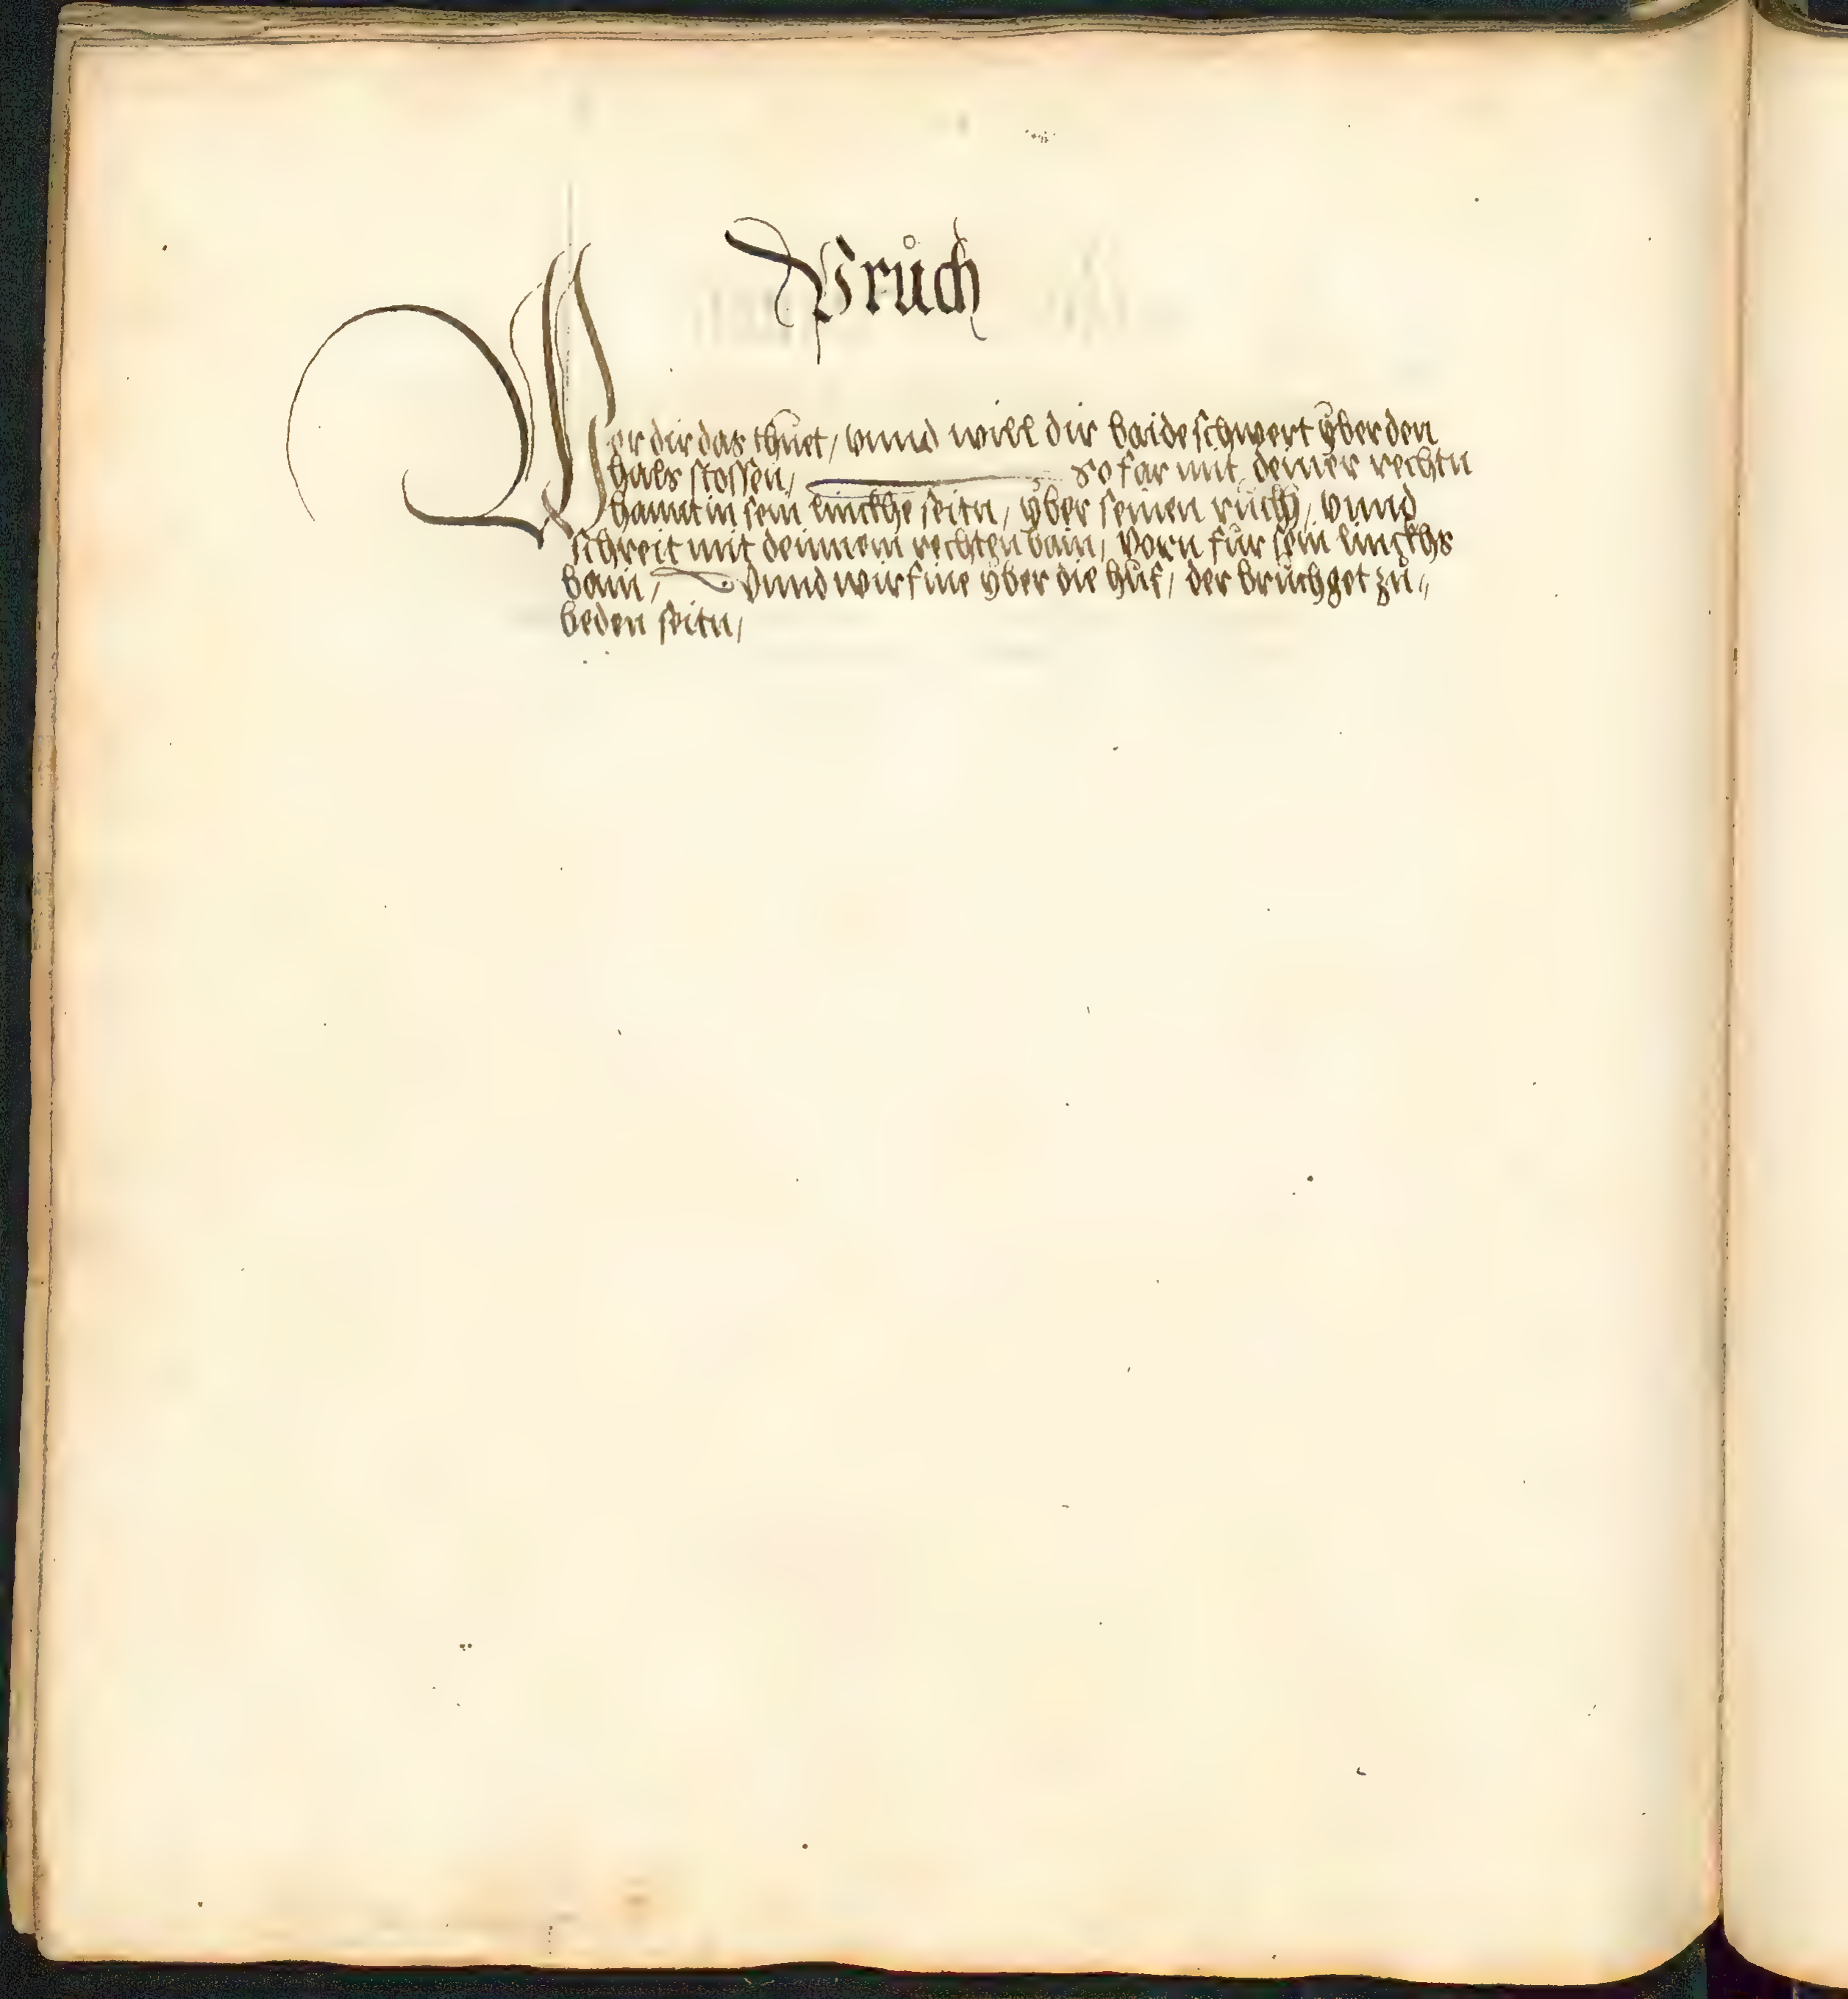 Prüch
Wer dir das thuet, vnnd will dir baide schwert yber den
hals stossen, so far mit deiner rechtn
hannt in sein linckhe seitn, yber seinen rückh, vnnd
schreit mit deinnem rechten bain, vorn für sein linckhs
bain, Vnnd wirf ine yber die hüf, der brüch get zů„
beden seitn,